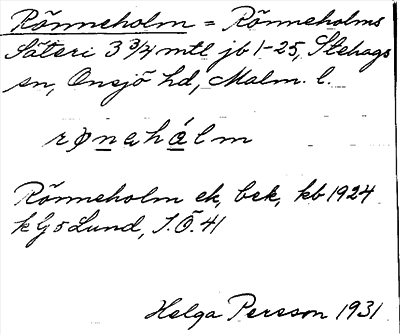 Rönneholm = Rönneholms
Säteri 3 3/4 mtl jb 1-25, Stehags
sn, Onsjö hd, Malm. l.
rønahálm
Rönneholm ek, bek, kb 1924
k G 5 Lund, S.Ö. 41
Helga Persson 1931